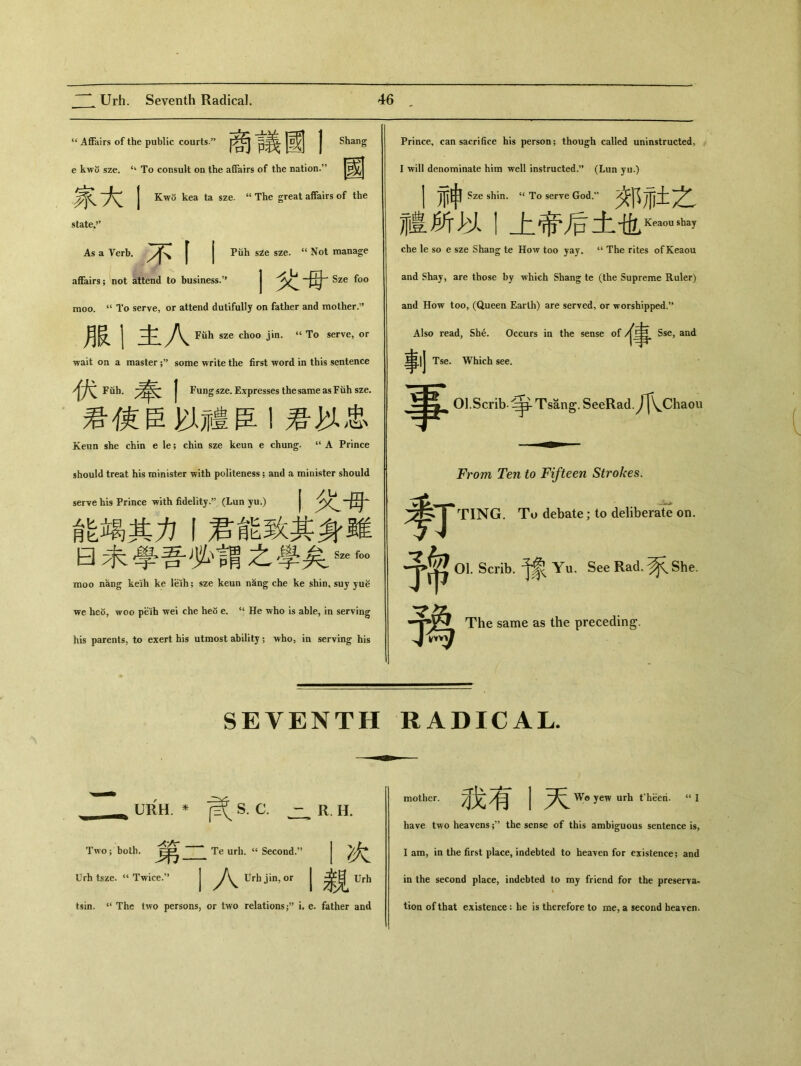 二 Urh. Seventh Radical. 46
“ Affairs of the public courts.” 商議國 | Shang
e kwŏ sze. “ To consult on the affairs of the nation.” 國
家大 | Kwŏ kea ta sze. “ The great affairs of the
state,”
As a Verb. 不 | | Püh sze sze. “ Not manage
affairs; not attend to business.” | 父母 Sze foo
moo. “ To serve, or attend dutifully on father and mother.”
服 | 主人 Füh sze choo jin. “ To serve, or
wait on a master;” some write the first word in this sentence
伏 Füh. 奉 | Fung sze. Expresses the same as Füh sze.
君使臣以禮臣 | 君以忠
Keun she chin e le; chin sze keun e chung. “ A Prince
should treat his minister with politeness; and a minister should
serve his Prince with fidelity.” (Lun yu.) | 父母
能竭其力 | 君能致其身雖
曰未學吾必謂之學矣 Sze foo
moo năng keĭh ke leĭh; sze keun năng che ke shin, suy yuĕ
we heŏ, woo peĭh wei che heŏ e. “ He who is able, in serving
his parents, to exert his utmost ability; who, in serving his
Prince, can sacrifice his person; though called uninstructed,
I will denominate him well instructed.” (Lun yu.)
| 神 Sze shin. “ To serve God.” 郊社之
禮所以 | 上帝后土也 Keaou shay
che le so e sze Shang te How too yay. “ The rites of Keaou
and Shay, are those by which Shang te (the Supreme Ruler)
and How too, (Queen Earth) are served, or worshipped.”
Also read, Shé. Occurs in the sense of 倳 Sse, and
剚 Tse. Which see.
Ol. Scrib. 爭 Tsăng. See Rad. 爪 Chaou
From Ten to Fifteen Strokes.
TING. To debate; to deliberate on.
Ol. Scrib. 豫 Yu. See Rad. 豕 She.
The same as the preceding.
SEVENTH RADICAL.
二 URH. * 弍 S. C. 二 R. H.
Two; both. 第二 Te urh. “ Second.” | 次
Urh tsze. “ Twice.” | 人 Urh jin, or | 親 Urh
tsin. “ The two persons, or two relations;” i. e. father and
mother. 我有 | 天 We yew urh t'hëen. “ I
have two heavens;” the sense of this ambiguous sentence is,
I am, in the first place, indebted to heaven for existence; and
in the second place, indebted to my friend for the preserva-
tion of that existence: he is therefore to me, a second heaven.